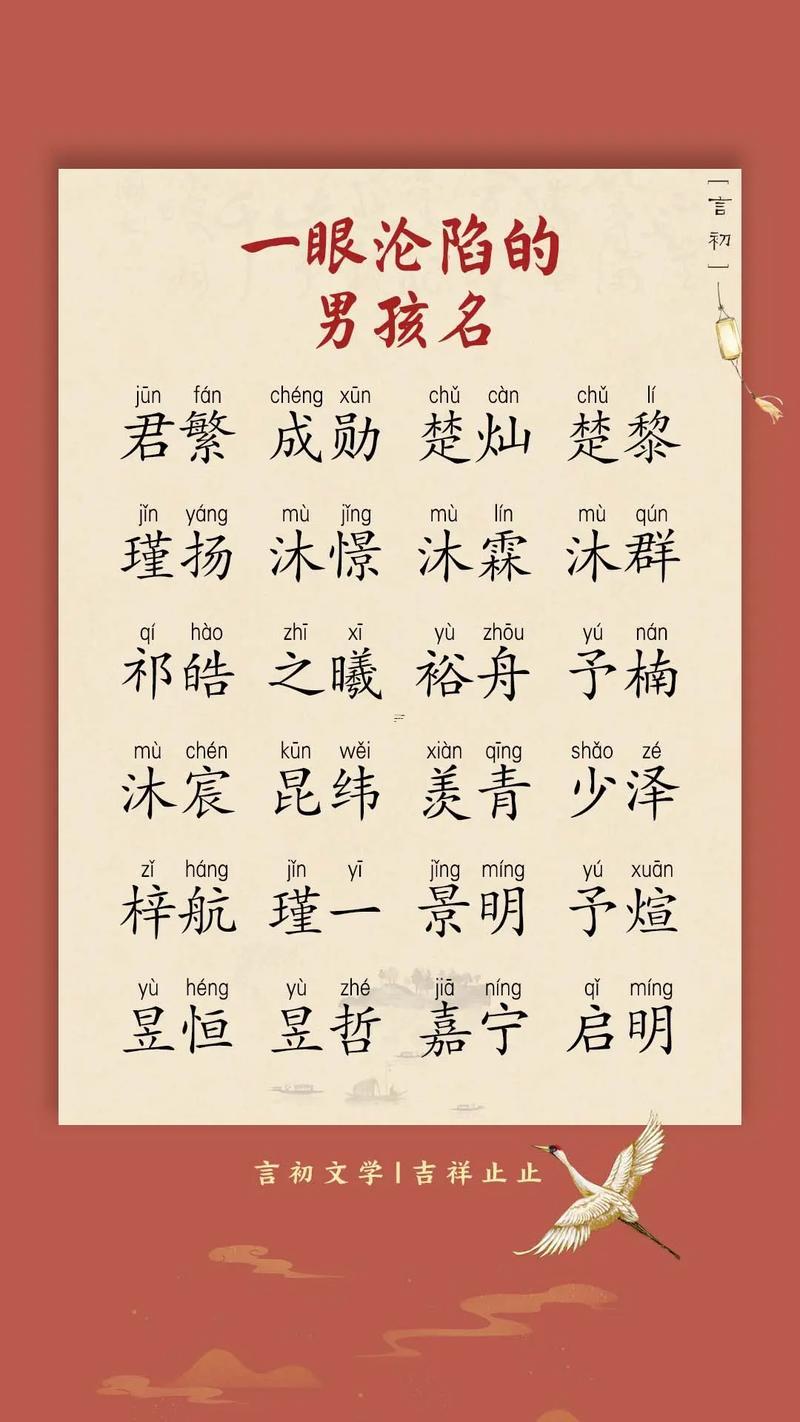 [言初]
一眼沦陷的
男孩名
jūn fán chéng xūn chǔ càn chǔ lí
君繁 成勋 楚灿 楚黎
jǐn yáng mù jǐng mù lín mù qún
瑾扬 沐憬 沐霖 沐群
qí hào zhī xī yù zhōu yú nán
祁皓 之曦 裕舟 予楠
mù chén kūn wěi xiàn qīng shǎo zé
沐宸 昆纬 羡青 少泽
zǐ háng jǐn yī jǐng míng yú xuān
梓航 瑾一 景明 予煊
yù héng yù zhé jiā níng qǐ míng
昱恒 昱哲 嘉宁 启明
言初文学|吉祥止止